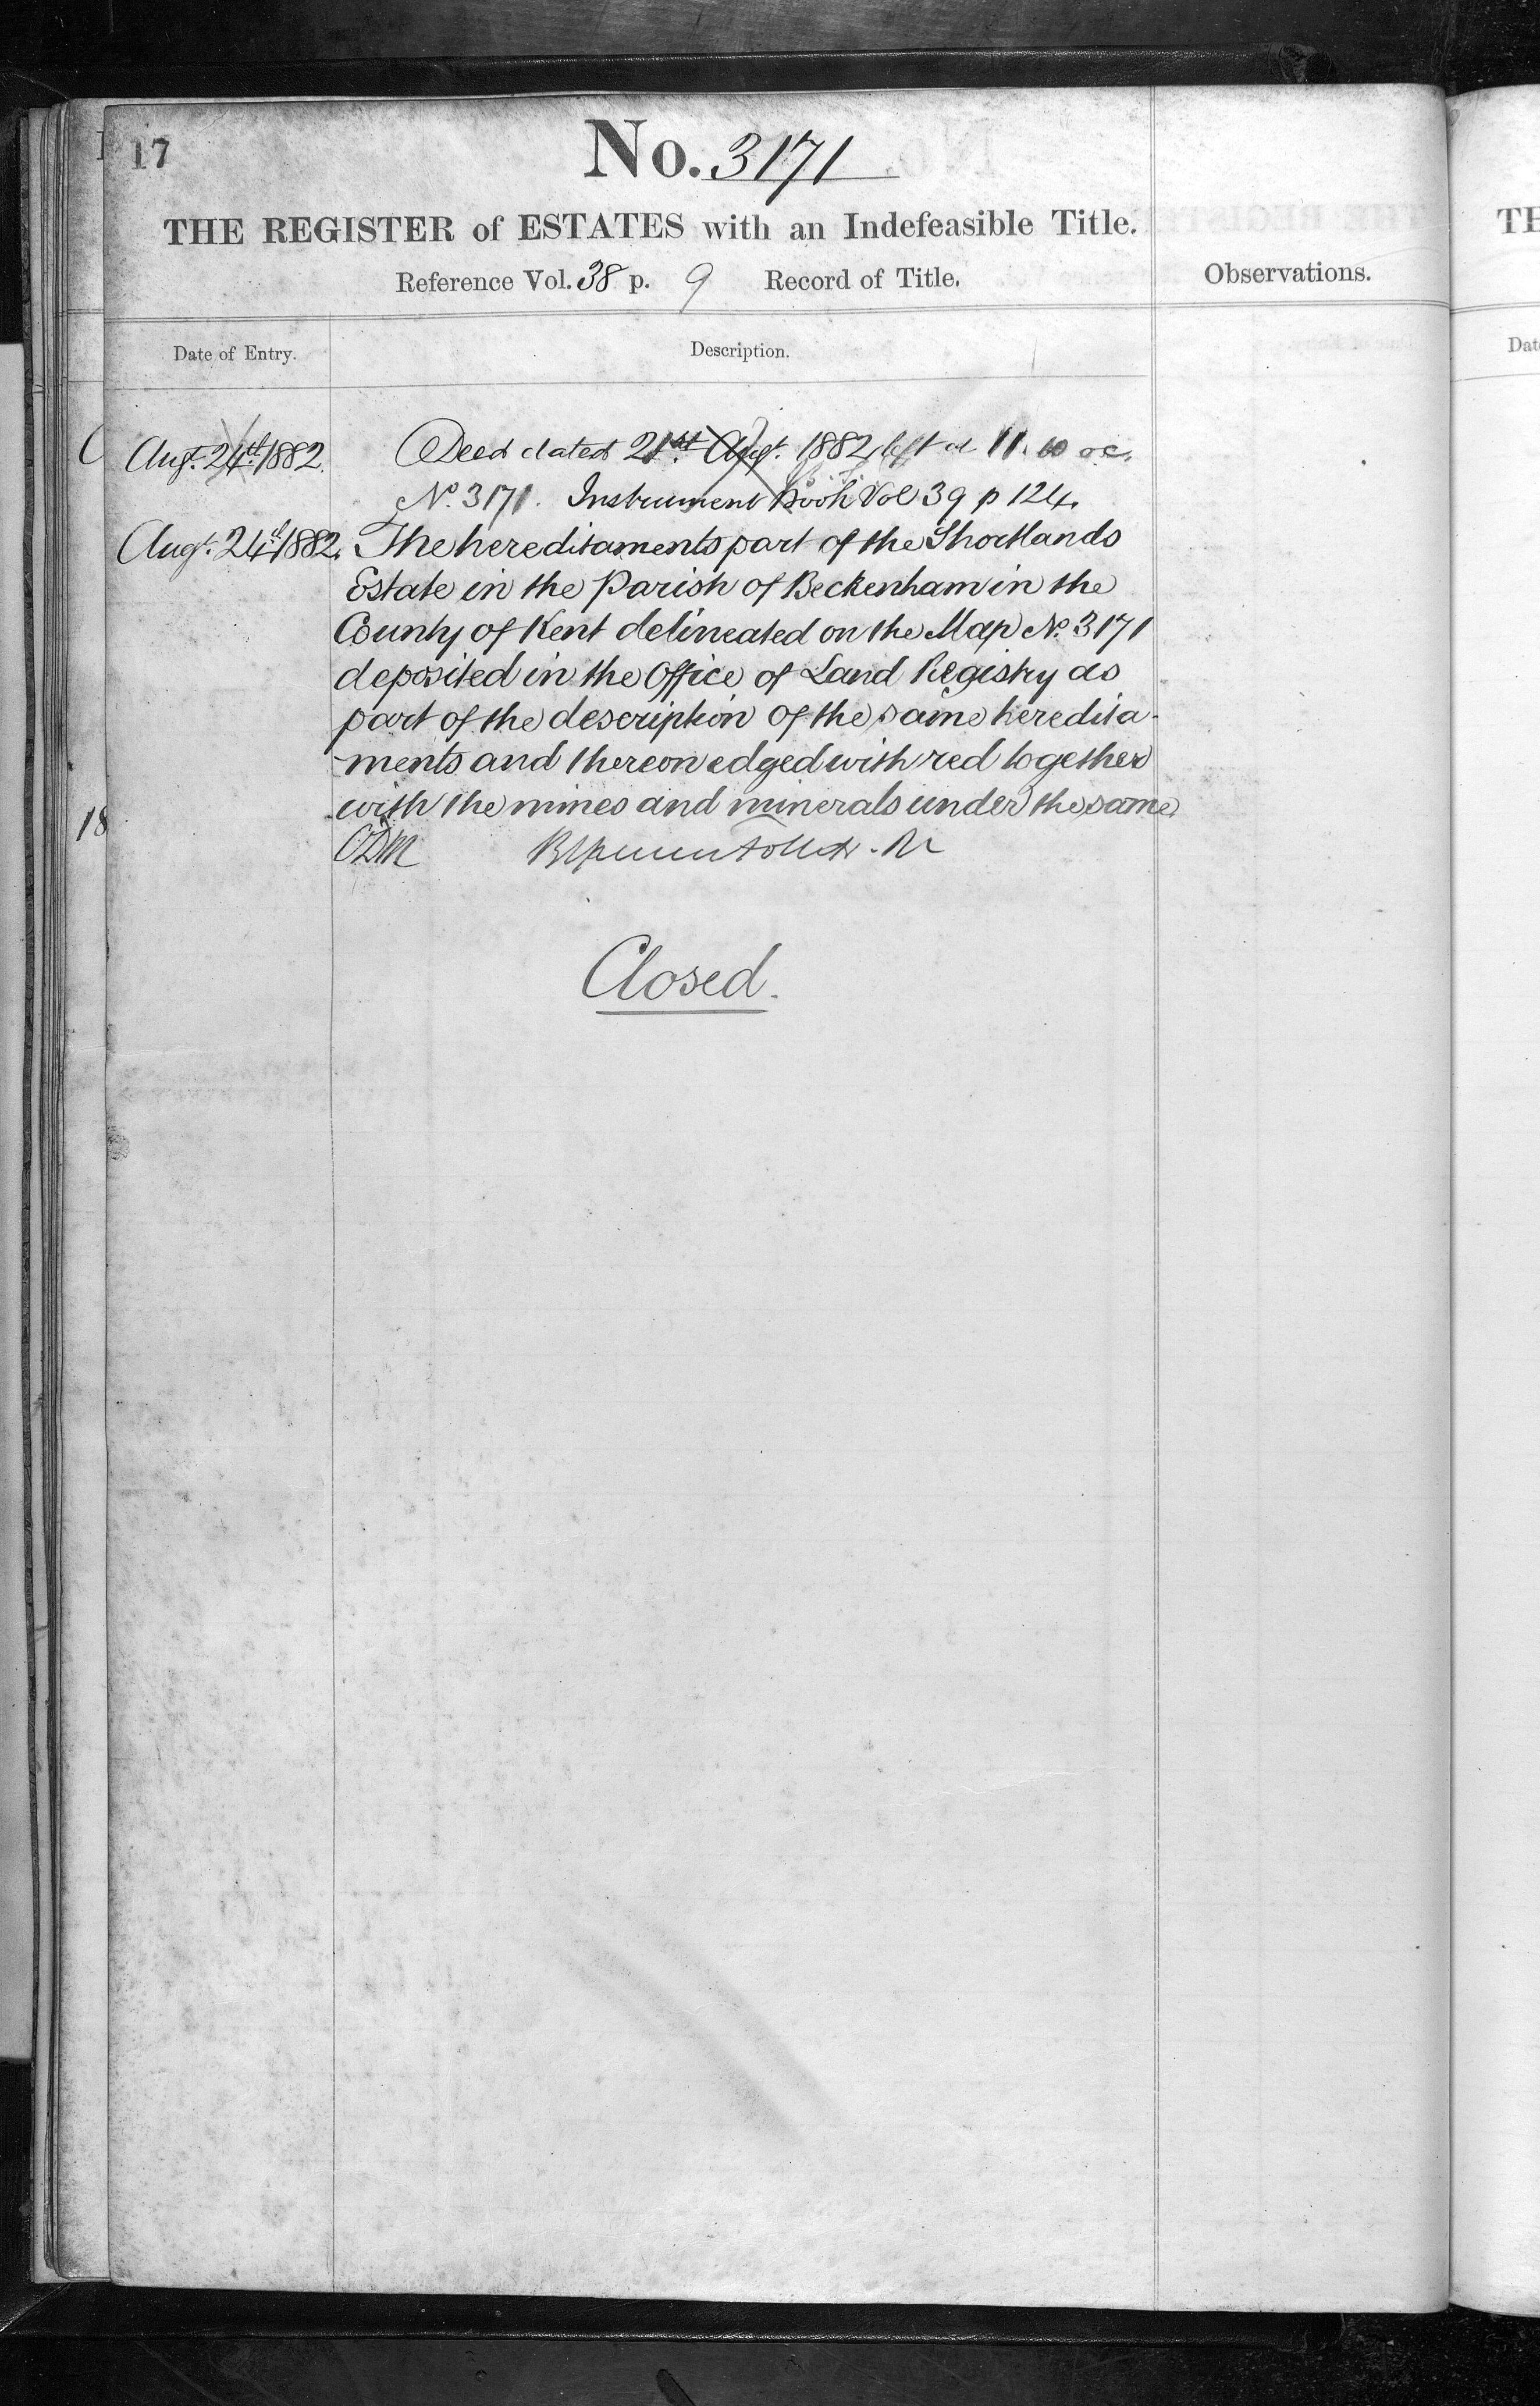 17
No. 3171
THE REGISTER of ESTATES with an Indefeasible Title.
Reference Vol. 38 p. 9 Record of Title.
Observations.
Date of Entry.
Description.
Augt. 24th 1882. Deed dated 21st Augt. 1882 left at 11.
No. 3171. Instrument Book Vol 39 p 124.
Augt. 24th 1882. The hereditaments part of the Shortlands
Estate in the Parish of Beckenham in the
County of Kent delineated on the Map No. 3171
deposited in the Office of Land Registry as
part of the description of the same heredita-
ments and thereon edged with red together
with the mines and minerals under the same
18
Closed.
TH
Dat